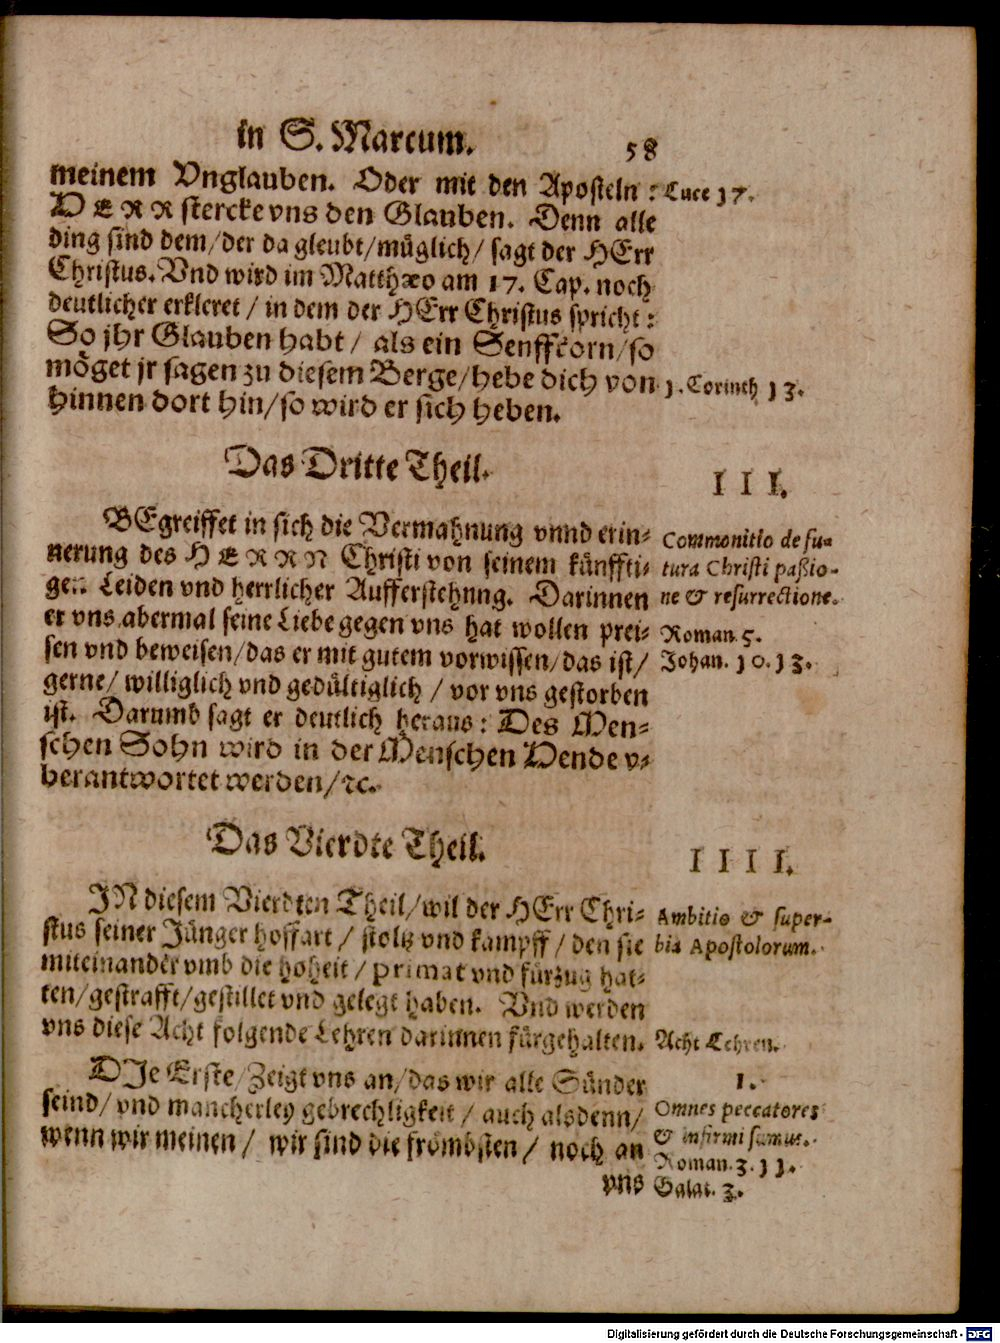 in S. Marcum. 58
meinem Vnglauben. Oder mit den Aposteln : Luce 17.
HERR stercke vns den Glauben. Denn alle
ding sind dem/der da gleubt/müglich/ sagt der HErr
Christus. Vnd wird im Matthæo am 17. Cap. noch
deutlicher erkleret / in dem der HErr Christus spricht :
So jhr Glauben habt / als ein Senffkorn/so
möget jr sagen zu diesem Berge/hebe dich von 1. Corinth 13.
hinnen dort hin/so wird er sich heben.
Das Dritte Theil. III.
BEgreiffet in sich die Vermahnung vnnd erin- Commonitio de fu-
nerung des HERRN Christi von seinem künffti- tura Christi paßio-
gen Leiden vnd herrlicher Aufferstehnng. Darinnen ne & resurrectione.
er vns abermal seine Liebe gegen vns hat wollen prei- Roman. 5.
sen vnd beweisen/das er mit gutem vorwissen/das ist/ Johan. 10. 13.
gerne/ williglich vnd gedültiglich / vor vns gestorben
ist. Darumb sagt er deutlich heraus : Des Men-
schen Sohn wird in der Menschen Hende v-
berantwortet werden/ꝛc.
Das Vierdte Theil. IIII.
IN diesem Vierdten Theil/wil der HErr Chri- Ambitio & super-
stus seiner Jünger hoffart / stoltz vnd kampff / den sie bia Apostolorum.
miteinander vmb die hoheit / primat vnd fürzug hat-
ten/gestrafft/gestillet vnd gelegt haben. Vnd werden
vns diese Acht folgende Lehren darinnen fürgehalten. Acht Lehren.
DJe Erste/Zeigt vns an/das wir alle Sünder 1.
seind/ vnd mancherley gebrechligkeit / auch alsdenn/ Omnes peccatores
wenn wir meinen / wir sind die frömbsten / noch an & infirmi sumus.
Roman. 3. 11.
vns Galat. 3.
Digitalisierung gefördert durch die Deutsche Forschungsgemeinschaft - DFG